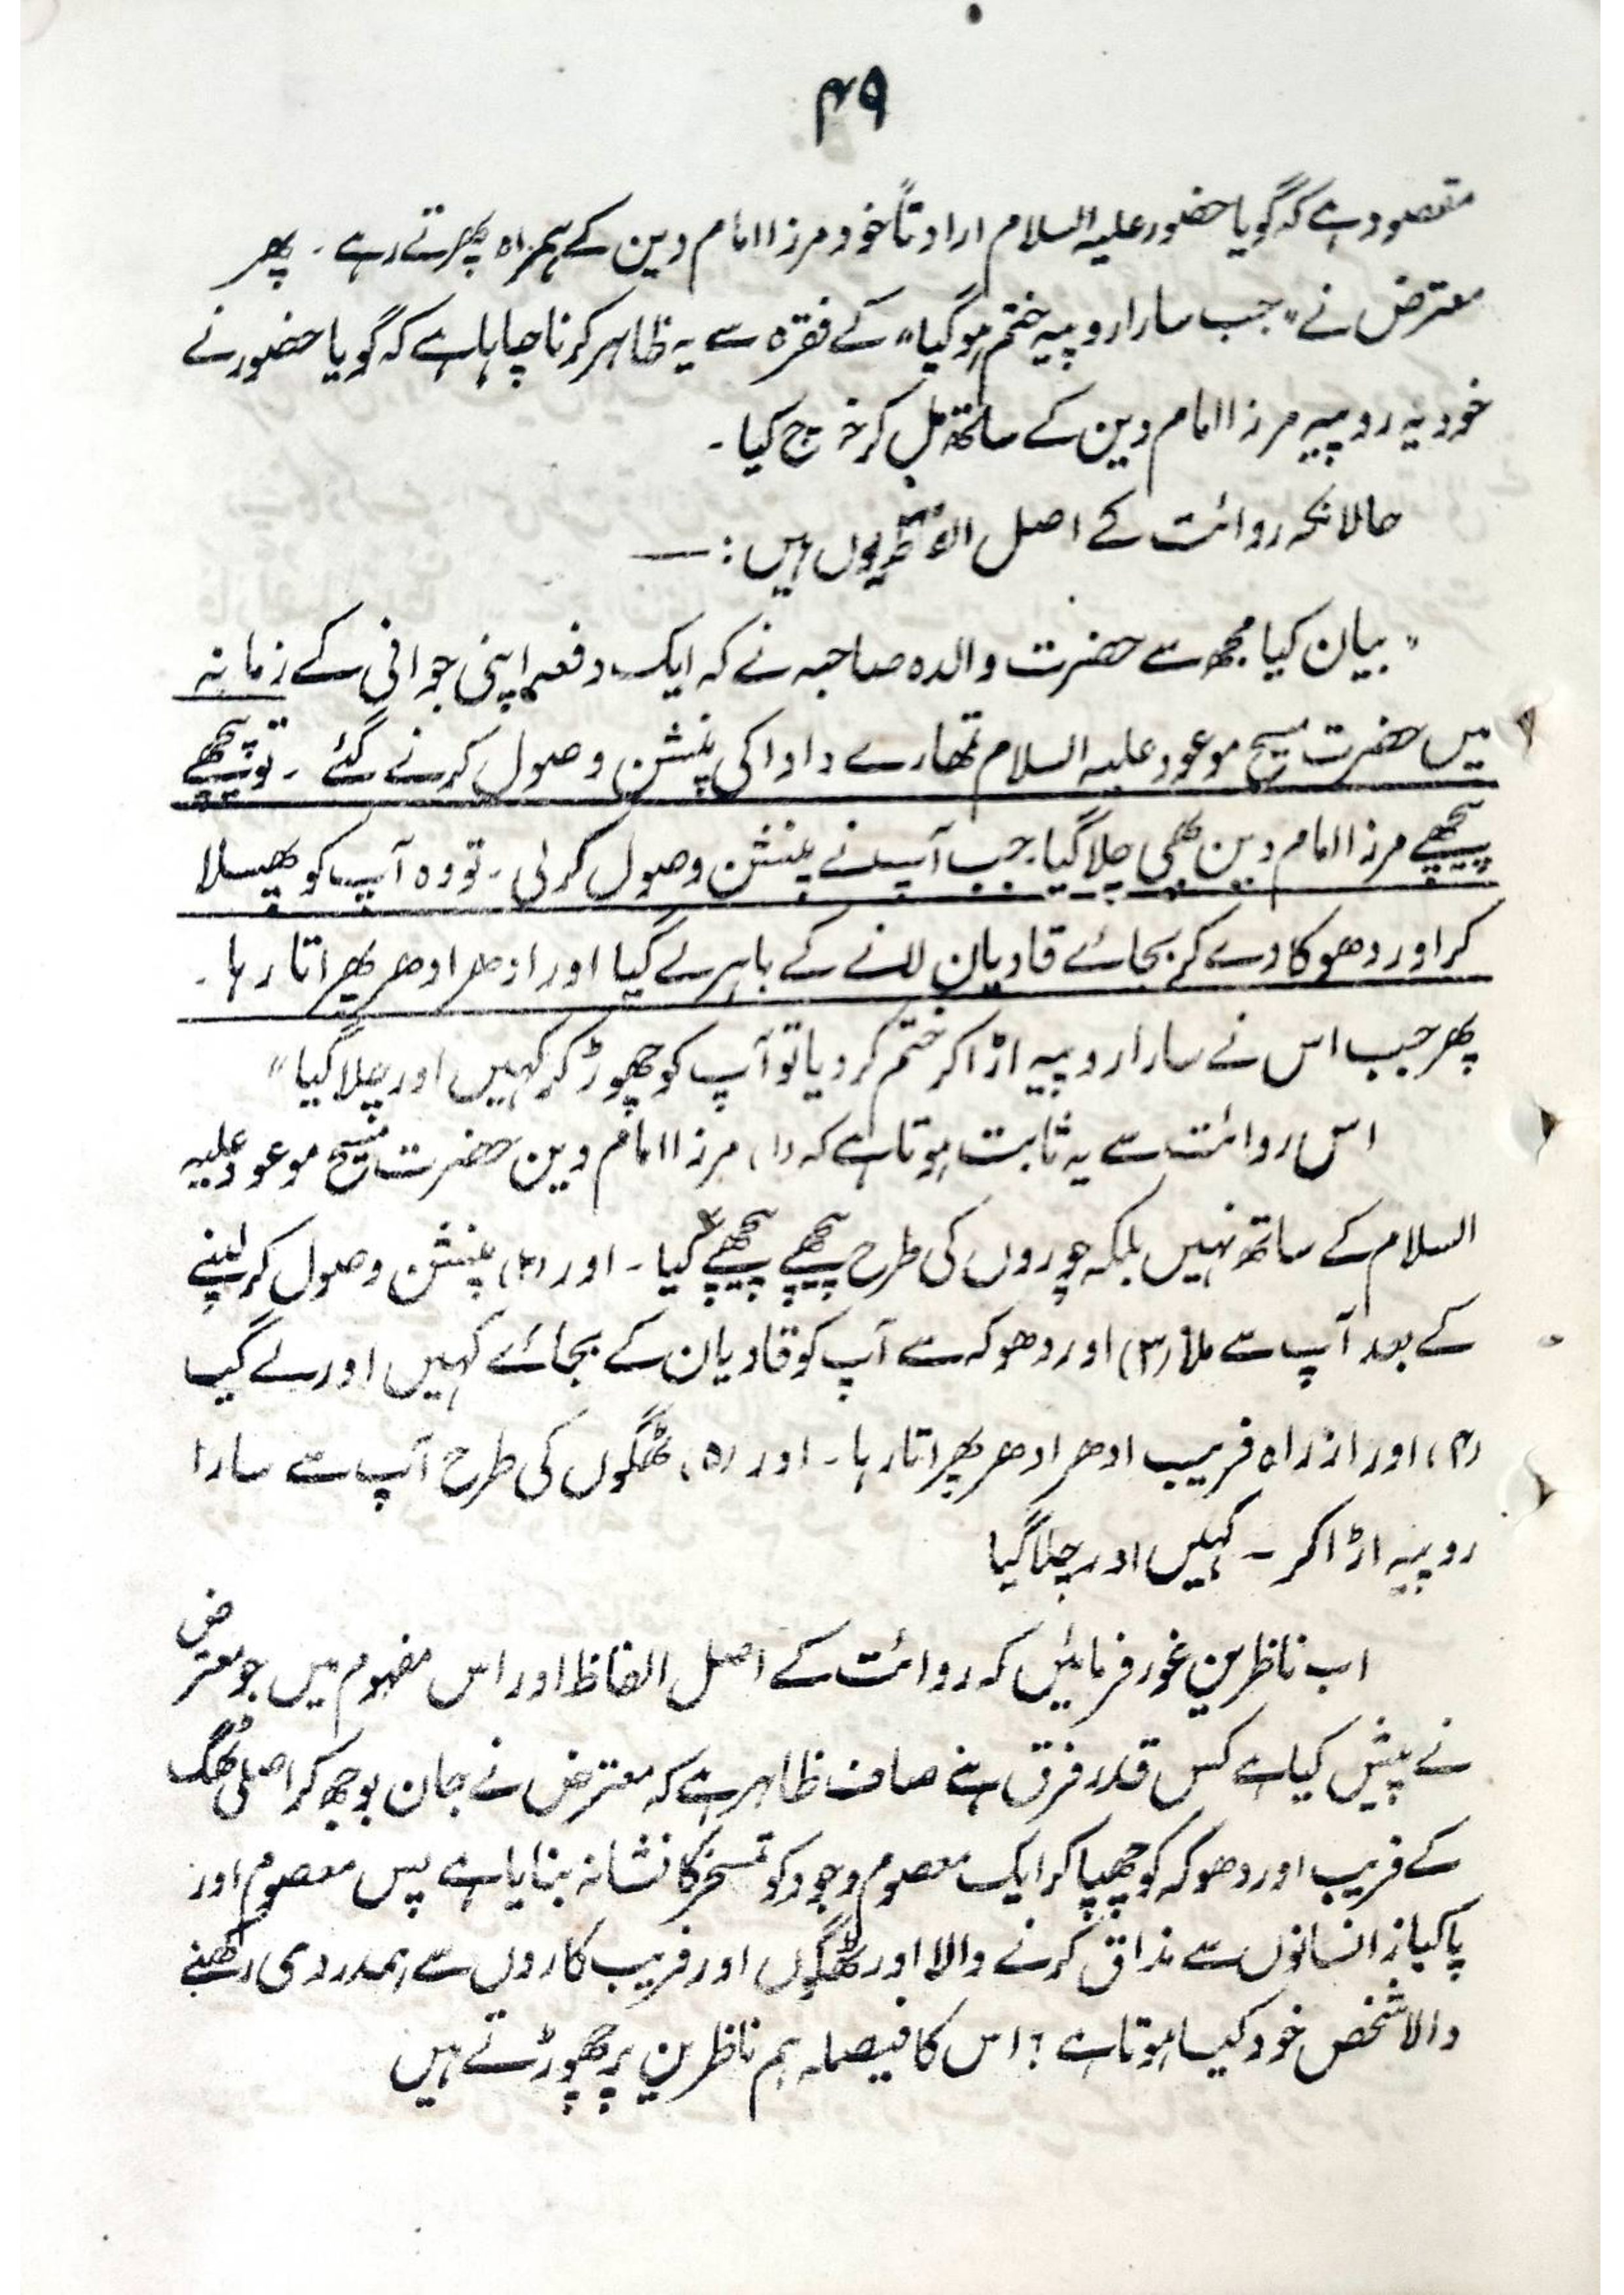 ۴۹
مقصود ہے کہ گویا حضور علیہ السلام ارادتاً خود مرزا امام دین کے ہمراہ پھرتے رہے ۔ پھر
معترض نے "جب سارا روپیہ ختم ہو گیا" کے فقرہ سے یہ ظاہر کرنا چاہا ہے کہ گویا حضور نے
خود یہ روپیہ مرزا امام دین کے ساتھ مل کر خرچ کیا ۔
حالانکہ روائت کے اصل الفاظ یوں ہیں : —
"بیان کیا مجھ سے حضرت والدہ صاحبہ نے کہ ایک دفعہ اپنی جوانی کے زمانہ
میں حضرت مسیح موعود علیہ السلام تمھارے دادا کی پنشن وصول کرنے گئے ۔ تو پیچھے
پیچھے مرزا امام دین بھی چلا گیا ۔ جب آپ نے پنشن وصول کر لی ۔ تو وہ آپ کو پھسلا
کر اور دھوکا دے کر بجائے قادیان لانے کے باہر لے گیا اور ادھر ادھر پھراتا رہا ۔
پھر جب اس نے سارا روپیہ اڑا کر ختم کر دیا تو آپ کو چھوڑ کر کہیں اور چلا گیا "
اس روائت سے یہ ثابت ہوتا ہے کہ (۱) مرزا امام دین حضرت مسیح موعود علیہ
السلام کے ساتھ نہیں بلکہ چوروں کی طرح پیچھے پیچھے گیا ۔ اور (۲) پنشن وصول کر لینے
کے بعد آپ سے ملا (۳) اور دھوکہ سے آپ کو قادیان کے بجائے کہیں اور لے گیا
(۴) اور از راہ فریب ادھر ادھر پھراتا رہا ۔ اور (۵) ٹھگوں کی طرح آپ سے سارا
روپیہ اڑا کر ۔ کہیں اور چلا گیا
اب ناظرین غور فرمائیں کہ روائت کے اصل الفاظ اور اس مفہوم میں جو معترض
نے پیش کیا ہے کس قدر فرق ہے صاف ظاہر ہے کہ معترض نے جان بوجھ کر اصلی ٹھگ
کے فریب اور دھوکہ کو چھپا کر ایک معصوم وجود کو تمسخر کا نشانہ بنایا ہے پس معصوم اور
پاکباز انسانوں سے مذاق کرنے والا اور ٹھگوں اور فریب کاروں سے ہمدردی رکھنے
والا شخص خود کیسا ہوتا ہے ؟ اس کا فیصلہ ہم ناظرین پر چھوڑتے ہیں